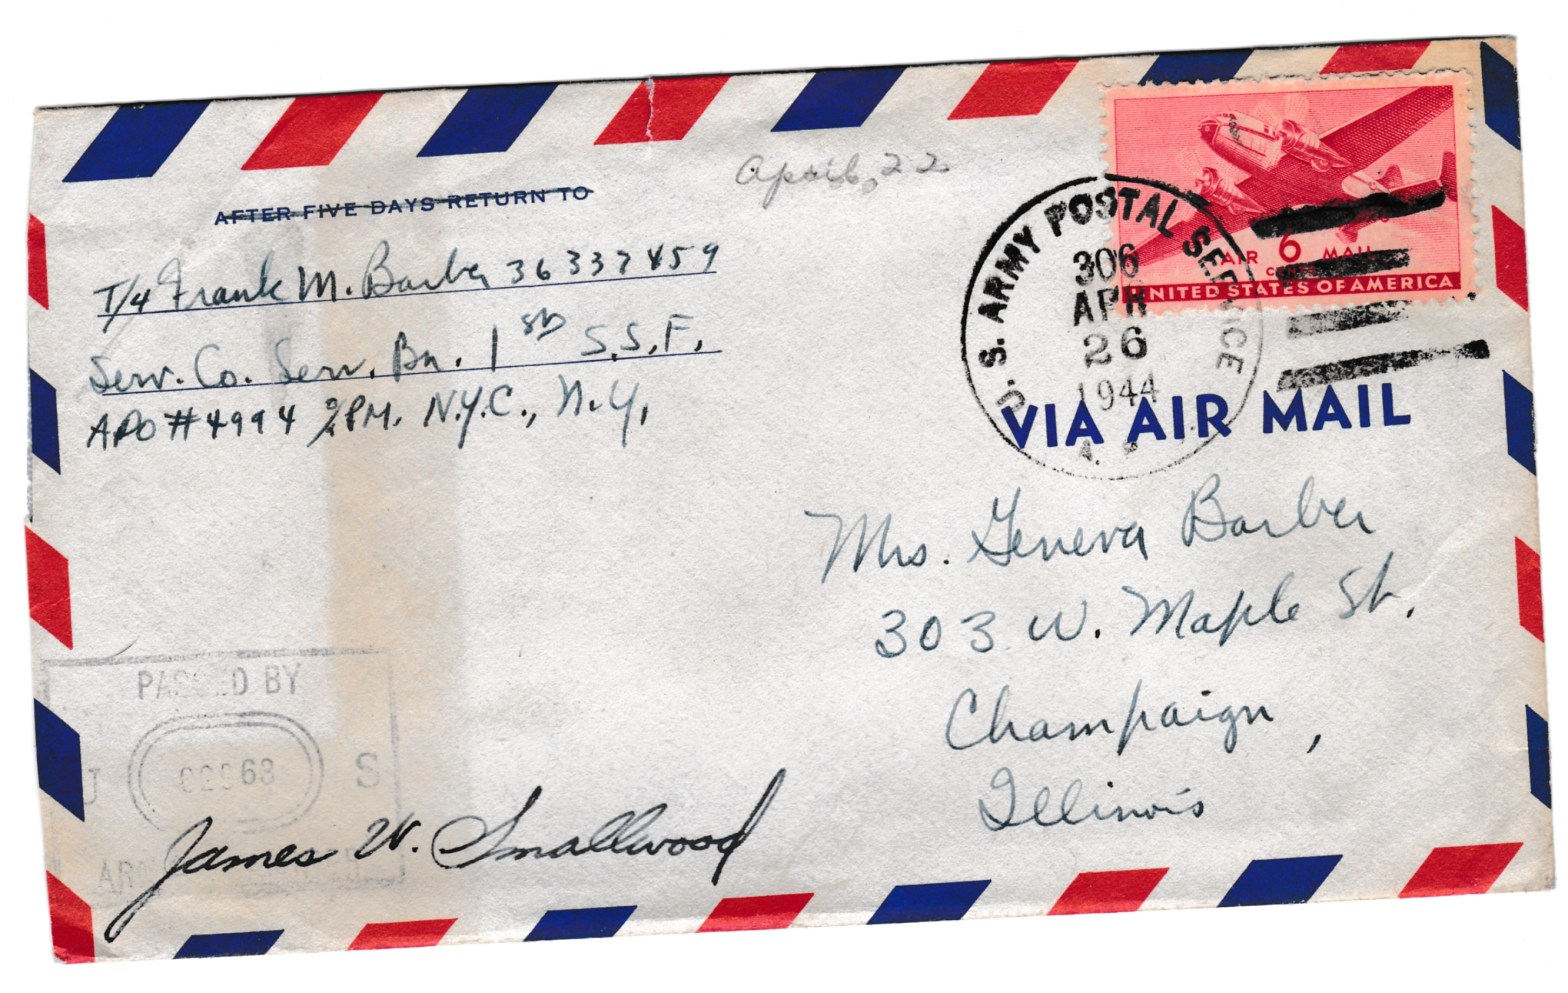 AFTER FIVE DAYS RETURN TO
April, 22
T/4 Frank M. Barber 36337459
Serv. Co. Serv. Bn. 1st S.S.F.
APO #4994 % PM. N.Y.C., N.Y.
U. S. ARMY POSTAL SERVICE
306
APR
26
1944
AIR 6 MAIL
CENTS
UNITED STATES OF AMERICA
VIA AIR MAIL
Mrs. Geneva Barber
303 W. Maple St.
Champaign,
Illinois
PASSED BY
U S
James W. Smallwood